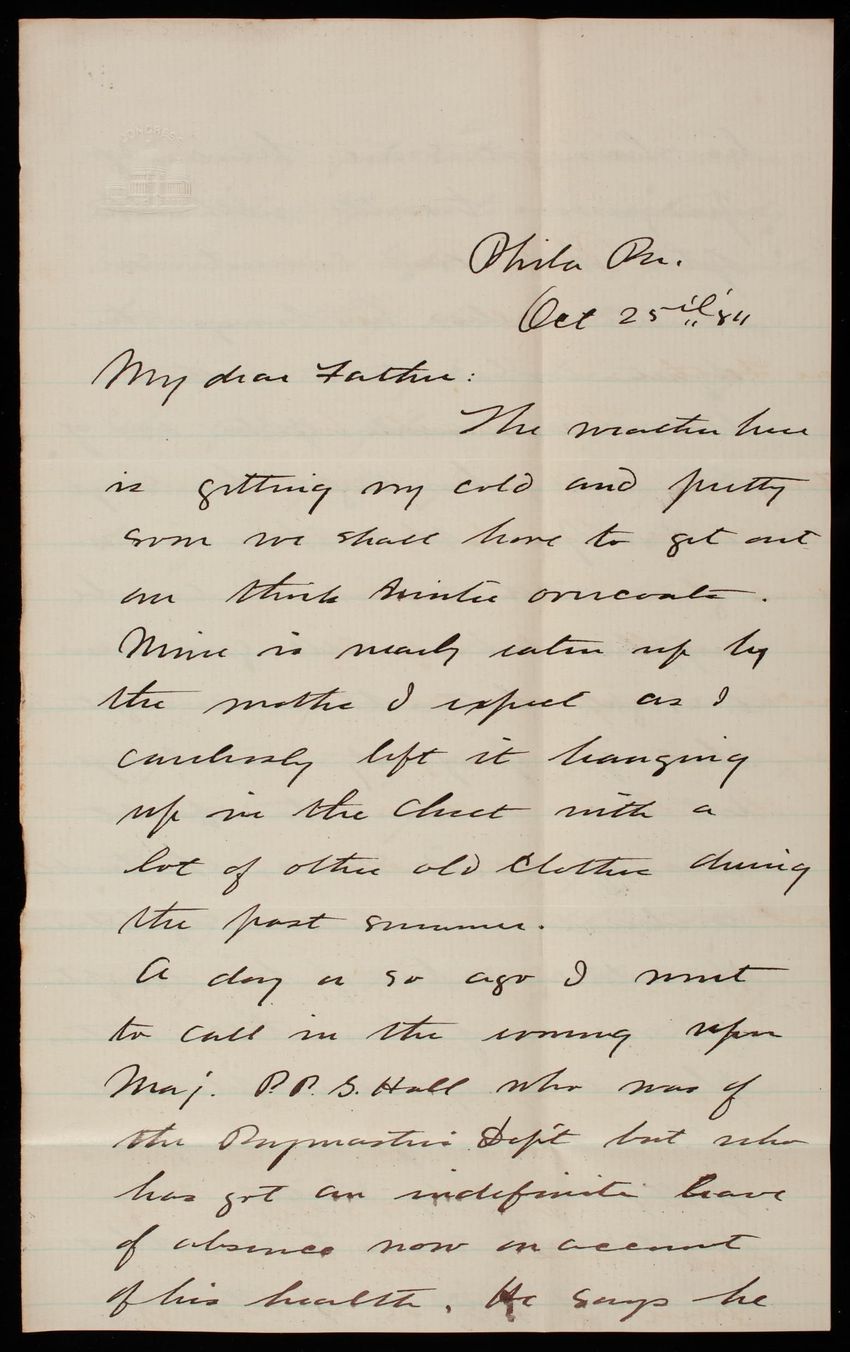 CONGRESS
Phila Pa.
Oct 25th 84
My dear Father:
The weather here
is getting very cold and pretty
soon we shall have to get out
our thick winter overcoats.
Mine is nearly eaten up by
the moths I expect as I
carelessly left it hanging
up in the closet with a
lot of other old clothes during
the past summer.
A day or so ago I went
to call in the evening upon
Maj. P. P. G. Hall who was of
the Paymasters Dep't but who
has got an indefinite leave
of absence now on account
of his health. He says he